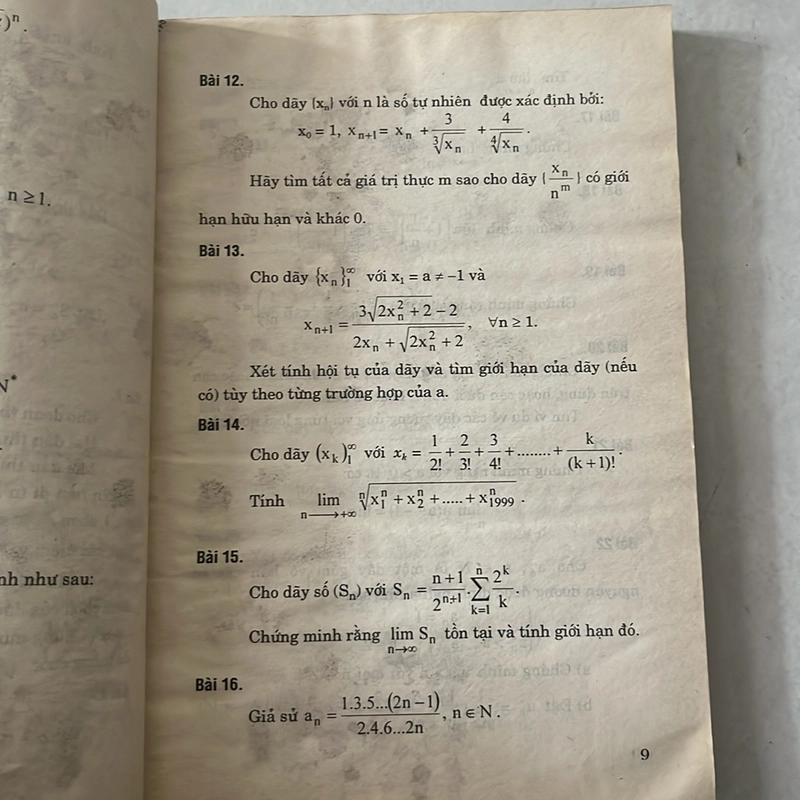 )ⁿ.
n ≥ 1.
N*
nh như sau:
Bài 12.
Cho dãy {xₙ} với n là số tự nhiên được xác định bởi:
x₀ = 1, xₙ₊₁ = xₙ + 3/∛xₙ + 4/∜xₙ.
Hãy tìm tất cả giá trị thực m sao cho dãy {xₙ/nᵐ} có giới
hạn hữu hạn và khác 0.
Bài 13.
Cho dãy {xₙ}₁^∞ với x₁ = a ≠ −1 và
xₙ₊₁ = (3√(2xₙ² + 2) − 2)/(2xₙ + √(2xₙ² + 2)), ∀n ≥ 1.
Xét tính hội tụ của dãy và tìm giới hạn của dãy (nếu
có) tùy theo từng trường hợp của a.
Bài 14.
Cho dãy (xₖ)₁^∞ với xₖ = 1/2! + 2/3! + 3/4! + ........ + k/(k+1)!.
Tính lim n⟶+∞ ⁿ√(x₁ⁿ + x₂ⁿ + ..... + x₁₉₉₉ⁿ) .
Bài 15.
Cho dãy số (Sₙ) với Sₙ = (n+1)/2ⁿ⁺¹ . ∑ k=1 n 2ᵏ/k.
Chứng minh rằng lim n→∞ Sₙ tồn tại và tính giới hạn đó.
Bài 16.
Giả sử aₙ = 1.3.5...(2n−1)/2.4.6...2n, n ∈ N .
9